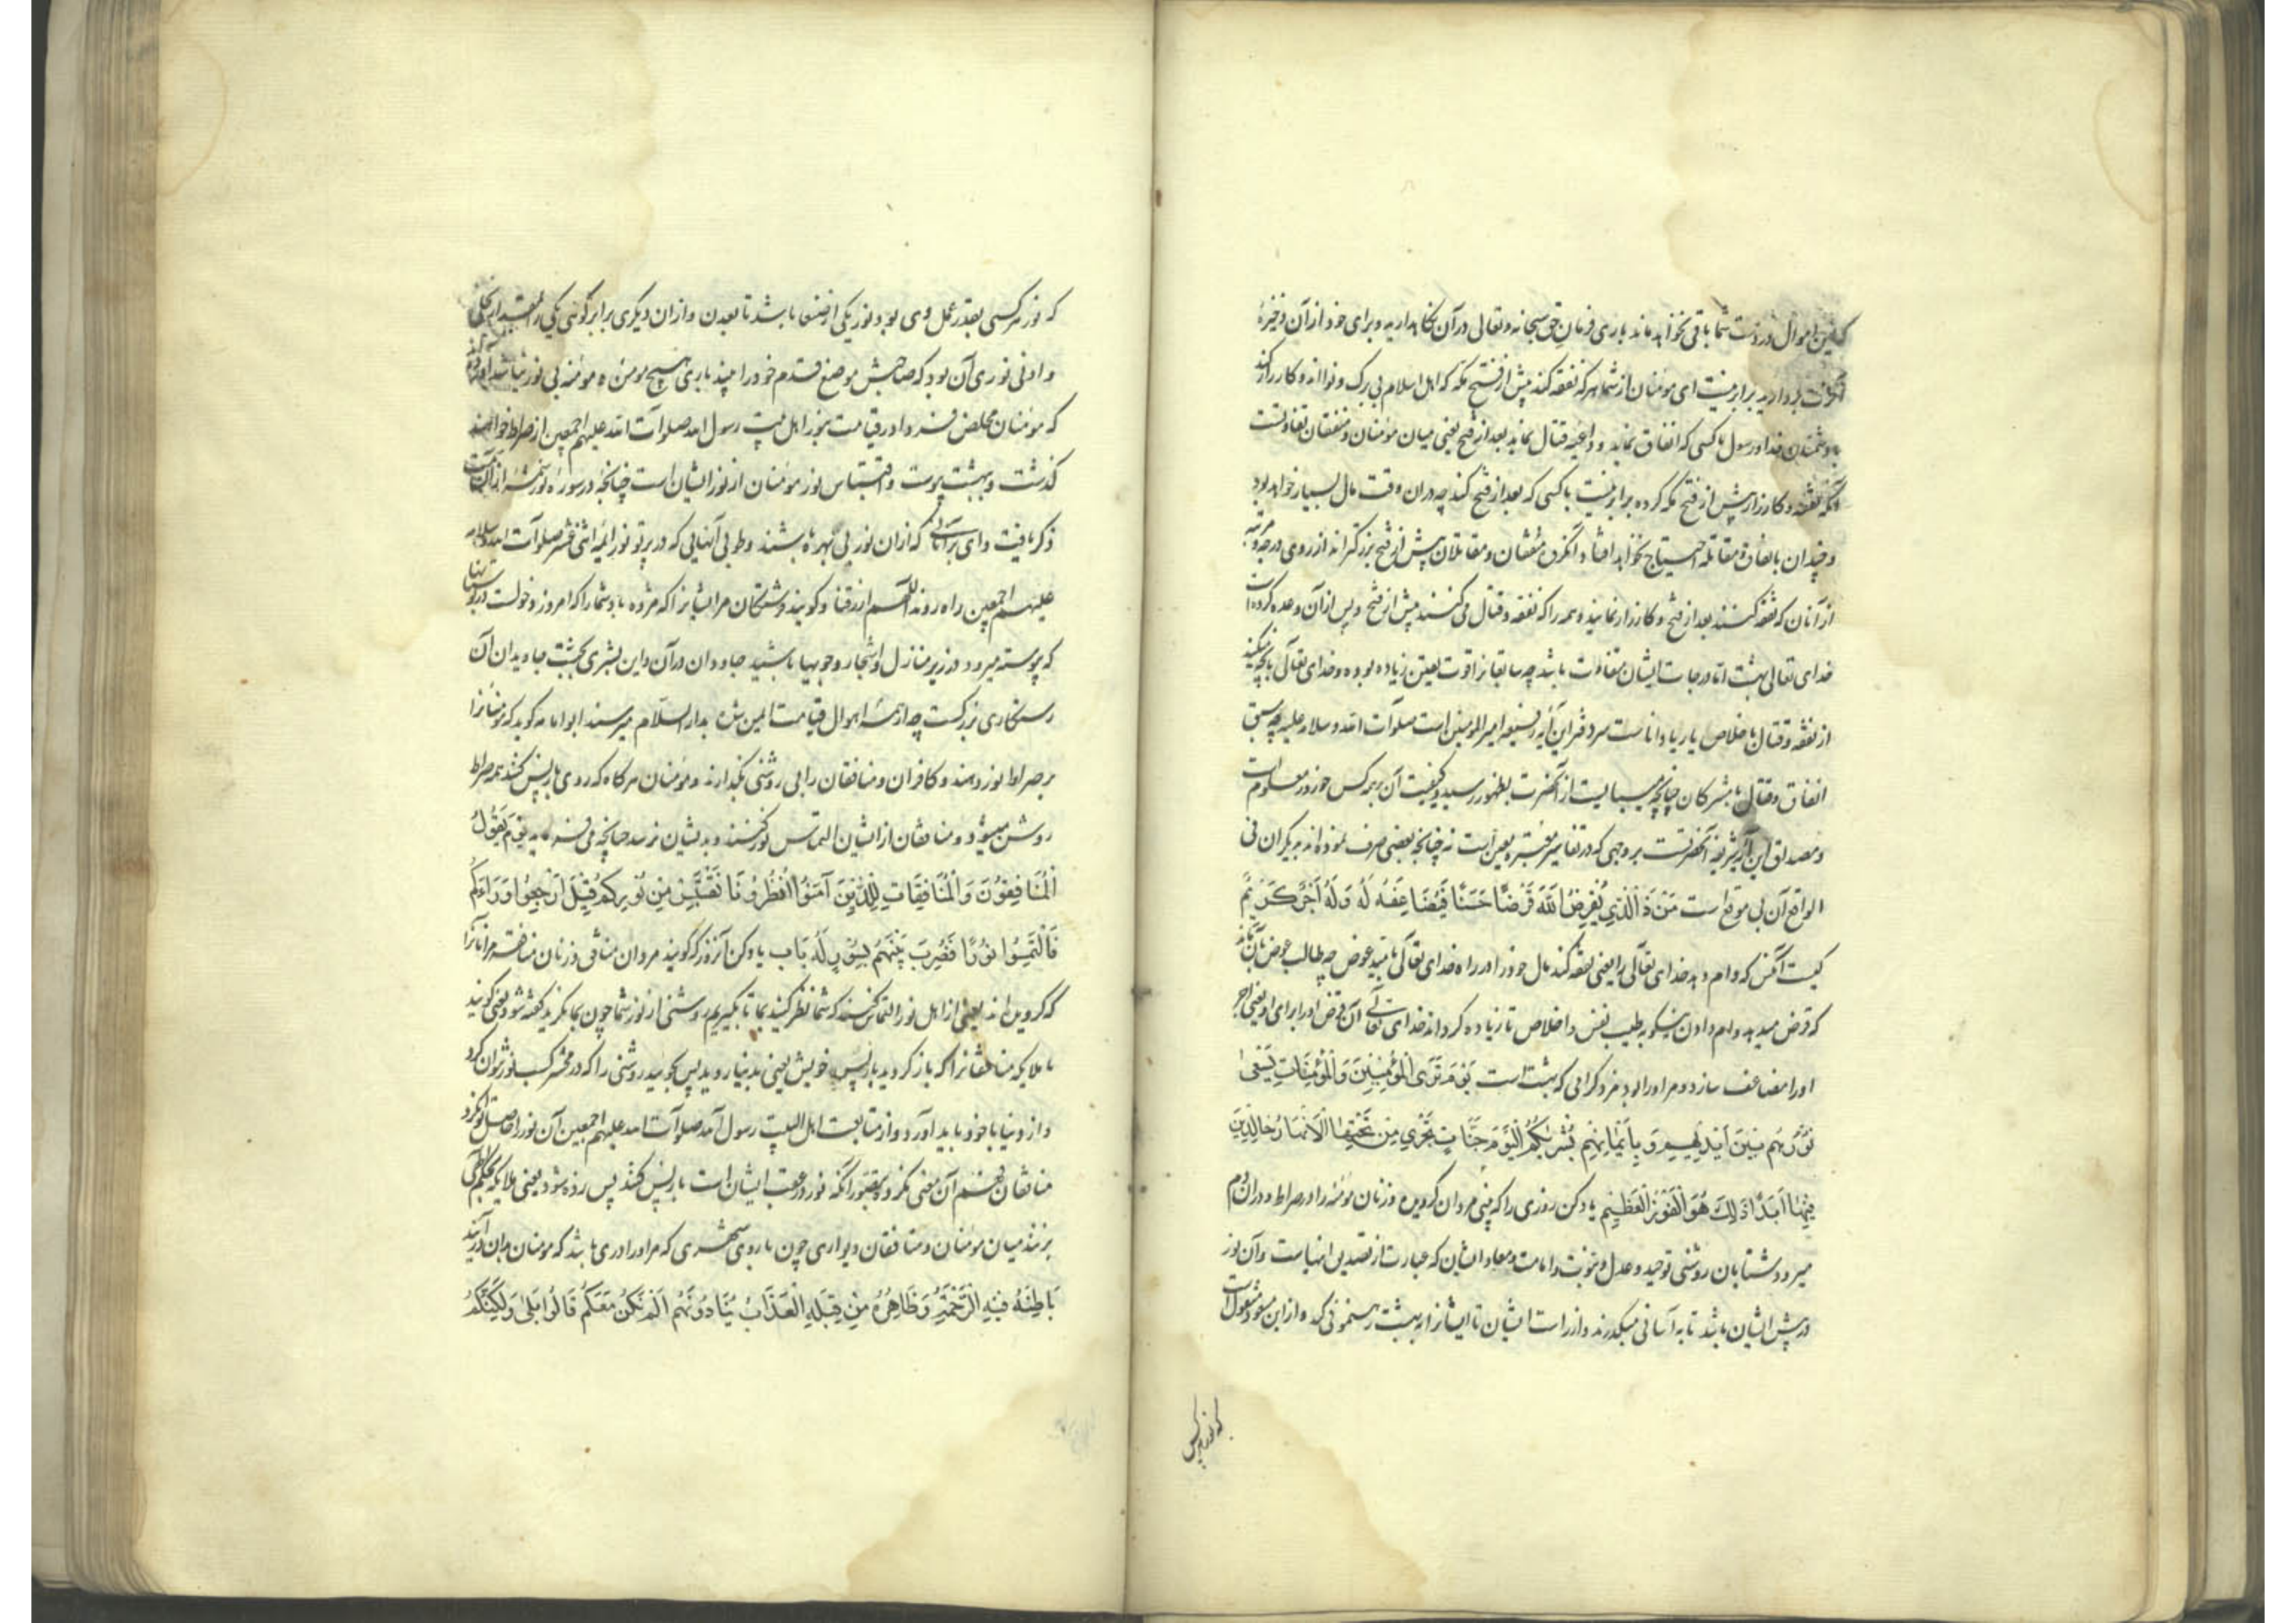 که این اموال در دست شما باقی نخواهد ماند باری فرمان حق سبحانه و تعالی در آن نگاهدارید و برای خود از آن ذخیرهٔ
بردارید برابر نیست ای مومنان از شما هر که نفقه کند پیش از فتح مکه که اهل اسلام بی برک و نوا اند و کارزار کند
با دشمنان خدا و رسول با کسی که انفاق نماید و داعیه قتال نماید بعد از فتح یعنی میان مومنان و منفقان تفاوتست
آنکه نفقه و کارزار پیش از فتح مکه کرده برابر نیست با کسی که بعد از فتح کند چه در آن وقت مال بسیار خواهد بود
و چندان بانفاق و مقاتله احتیاج نخواهد افتاد آنکروه منفقان و مقاتلان پیش از فتح بزرکتر اند از روی درجه و مرتبه
از آنان که نفقه کنند بعد از فتح و کارزار نمایند و همه را که نفقه و قتال می کنند پیش از فتح و پس از آن وعده کرده است
خدای تعالی بهشت اما درجات ایشان متفاوت باشد چه سابقانرا قوت یقین زیاده بوده و خدای تعالی بآنچه میکنید
از نفقه و قتال باخلاص یا ریا داناست سر دفتر این آیه رفیعه امیر المومنین است صلوات الله و سلامه علیه چه سبق
انفاق و قتال با مشرکان چنانچه میبایست از آنحضرت بظهور رسید و کیفیت آن بر همه کس چون روز معلوم است
و مصداق این آیه شریفه آنحضرتست بر وجهی که در تفاسیر معتبره یقین است نه چنانچه بعضی صرف نموده اند به دیکران فی
الواقع آن بی موقع است مَنْ ذَا الَّذِي يُقْرِضُ اللَّهَ قَرْضًا حَسَنًا فَيُضَاعِفَهُ لَهُ وَلَهُ أَجْرٌ كَرِيمٌ
کیست آنکس که وام دهد خدای تعالی را یعنی نفقه کند مال خود را در راه خدای تعالی بامید عوض چه طالب عوض بآن ماند
که قرض میدهد وام دادن نیکو به طیب نفس و اخلاص تا زیاده کرداند خدای تعالی آن قرض او را برای او یعنی اجر
او را مضاعف سازد و مر او را بود مزد کرامی که بهشت است يَوْمَ تَرَى الْمُؤْمِنِينَ وَالْمُؤْمِنَاتِ يَسْعَى
نُورُهُمْ بَيْنَ أَيْدِيهِمْ وَبِأَيْمَانِهِمْ بُشْرَيكُمُ الْيَوْمَ جَنَّاتٌ تَجْرِي مِنْ تَحْتِهَا الْأَنْهَارُ خَالِدِينَ
فِيهَا أَبَدًا ذَلِكَ هُوَ الْفَوْزُ الْعَظِيمُ یاد کن روزی را که بینی مردان کرویده و زنان مومنه را در صراط و در آن دم
میرود شتابان روشنی توحید و عدل و نبوت و امامت و معاد ایشان که عبارت از تصدیق اینهاست و آن نور
در پیش ایشان باشد تا به آسانی میکذرند و از راست ایشان تا ایشانرا به بهشت رهنمونی کند و از ابن مسعود منقول است
که نور هر کس
که نور هر کسی بقدر عمل وی بود نور یکی از صنعا باشد تا بعدن و از ان دیکری برابر کوهی یکی را بمقدار نخلی
و ادنی نوری آن بود که صاحبش موضع قدم خود را بیند باری هیچ مومن و مومنه بی نور نباشد آورده اند
که مومنان مخلص فردا در قیامت بنور اهل بیت رسول الله صلوات الله علیهم اجمعین از صراط خواهند
کذشت و ببهشت پیوست و اقتباس نور مومنان از نور ایشان است چنانچه در سوره نور شمهٔ از آن سمت
ذکر یافت وای بر آنانی که از ان نور بی بهره باشند و طوبی آنهایی که در پرتو نور ایمه اثنی عشر صلوات الله و سلامه
علیهم اجمعین راه روند اللهم ارزقنا و کویند فرشتکان مر ایشانرا که مژده باد شما را که امروز دخولست در بوستانها
که پیوسته میرود در زیر منازل و اشجار وجویها باشید جاودان در آن و این بشری بجنت جاویدان آن
رستکاری بزرکست چه از همه اهوال قیامت ایمن شده بدار السلام میرسند ابو امامه کوید که مومنانرا
بر صراط نور دهند و کافران و منافقان را بی روشنی بکذارند و مومنان هر کاه که روی باز پس کنند همه صراط
روشن میشود و منافقان از ایشان التماس نور کنند و بدیشان نرسد چنانچه می فرماید يَوْمَ يَقُولُ
الْمُنَافِقُونَ وَالْمُنَافِقَاتُ لِلَّذِينَ آمَنُوا انْظُرُونَا نَقْتَبِسْ مِنْ نُورِكُمْ قِيلَ ارْجِعُوا وَرَاءَكُمْ
فَالْتَمِسُوا نُورًا فَضُرِبَ بَيْنَهُمْ بِسُورٍ لَهُ بَابٌ یاد کن آنروز که کویند مردان منافق و زنان منافقه مر آنانرا
که کرویده اند یعنی از اهل نور التماس کنند که شما نظر کنید بما تا بکیریم روشنی از نور شما چون بما نکرید کفته شود یعنی کویند
ملایکه منافقانرا که باز کردید باز پس خویش یعنی بدنیا روید پس بجویید روشنی را که در محشر کسب نور نتوان کرد
و از دنیا با خود باید آورد و از متابعت اهل البیت رسول الله صلوات الله علیهم اجمعین آن نور را حاصل توان کرد
منافقان فهم آن معنی نکرده بتصور آنکه نور در عقب ایشان است باز پس کنند پس زده شود یعنی ملایکه بحکم الهی
بزنند میان مومنان و منافقان دیواری چون باروی شهری که مر او را دری باشد که مومنان بدان درآیند
بَاطِنُهُ فِيهِ الرَّحْمَةُ وَظَاهِرُهُ مِنْ قِبَلِهِ الْعَذَابُ يُنَادُونَهُمْ أَلَمْ نَكُنْ مَعَكُمْ قَالُوا بَلَى وَلَكِنَّكُمْ